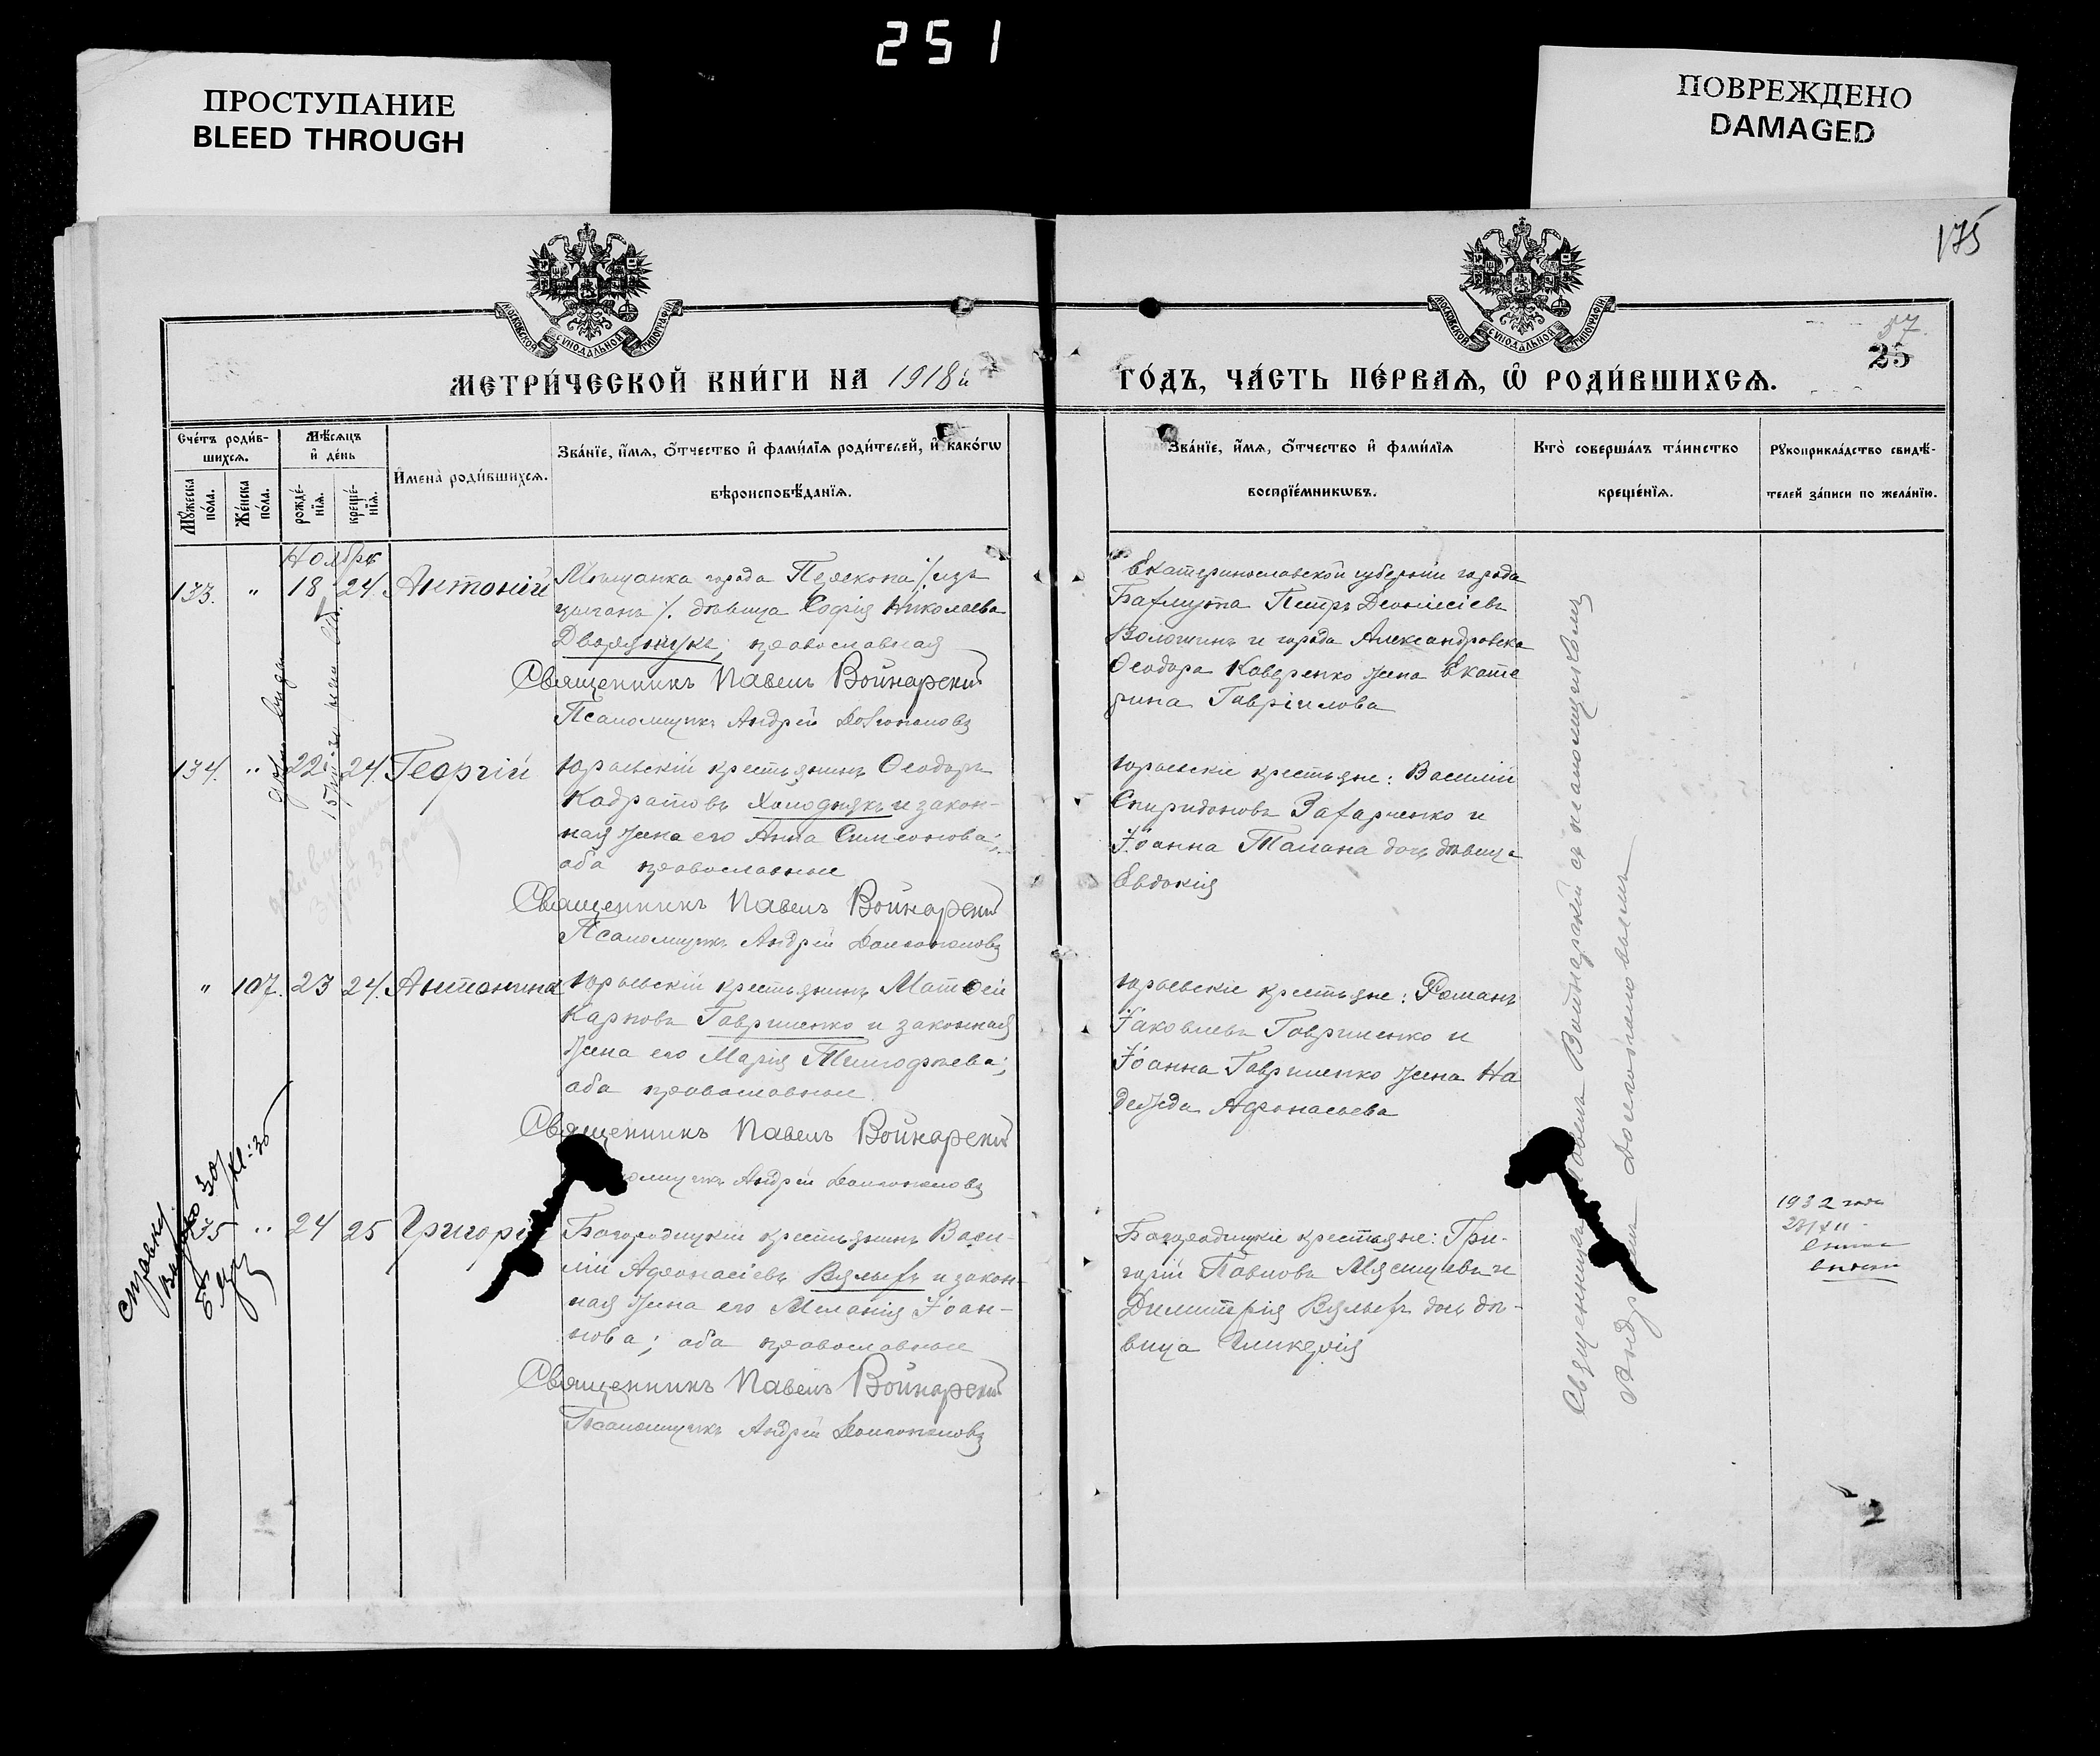 251
ПРОСТУПАНИЕ
BLEED THROUGH
ПОВРЕЖДЕНО
DAMAGED
175
МОСКОВСКОЙ СѴНОДАЛЬНОЙ ТИПОГРАФІИ
МОСКОВСКОЙ СѴНОДАЛЬНОЙ ТИПОГРАФІИ
37
25
МЕТРИ́ЧЕСКОЙ КНИ́ГИ НА 1918й
ГО́ДЪ, ЧА́СТЬ ПЕ́РВАѦ, Ѡ҆ РОДИ́ВШИХСѦ.
Сче́тъ роди́в-
шихсѧ.
Мꙋ́жеска
по́ла.
Же́нска
по́ла.
Мѣ́сѧцъ
и҆ де́нь
рожде́-
нїѧ.
креще́-
нїѧ.
И҆мена̀ роди́вшихсѧ.
Зва́нїе, и҆́мѧ, ѻ҆́тчество и҆ фами́лїѧ роди́телей, и҆ како́гѡ
вѣроисповѣ́данїѧ.
Зва́нїе, и҆́мѧ, ѻ҆́тчество и҆ фами́лїѧ
воспрїе́мникѡвъ.
Кто̀ соверша́лъ та́инство
креще́нїѧ.
Рꙋкоприкла́дство свидѣ́-
телей за́писи по жела́нїю.
Ноябрь
133. " 18 24. Антоній
Мѣщанка города Перекопа /изъ
цыганъ/. дѣвица Софія Николаева
Дворянчукъ; православная
Священникъ Павелъ Войнарскій
Псаломщикъ Андрей Долгополовъ
Екатеринославской губерніи города
Бахмута Петръ Діонисіевъ
Волошинъ и города Александровска
Ѳеодора жена Екате
рина Гавріилова
134. " 22 24. Георгій
Юрьевскій крестьянинъ Ѳеодоръ
Кодратовъ Холоднякъ и закон-
ная жена его Анна Симеонова;
оба православные
Священникъ Павелъ Войнарскій
Псаломщикъ Андрей Долгополовъ
Юрьевскіе крестьяне: Василій
Спиридоновъ Захарченко и
Іоанна Талана дочь дѣвица
Евдокія
" 107. 23 24. Антонина
Юрьевскій крестьянинъ Матѳей
Карповъ Гавриленко и законная
жена его Марія Тимофѣева;
оба православные.
Священникъ Павелъ Войнарскій
Андрей Долгополовъ
Юрьевскіе крестьяне: Романъ
Іаковлевъ Гавриленко и
Іоанна Гавриленко жена На
дежда Аѳонасьева
135 " 24 25 Григорі
Богородицкій крестьянинъ Васи-
лій Аѳонасіевъ Вялыхъ и закон-
ная жена его Меланія Іоан-
нова; оба православные
Священникъ Павелъ Войнарскій
Псаломщикъ Андрей Долгополовъ
Богородицкіе крестьяне: Гри-
горій Павловъ Мясищевъ и
Димитрія Вялыхъ дочь дѣ-
вица Гликерія
Священникъ Павелъ Войнарскій съ псаломщикомъ
Андреемъ Долгополовымъ
1932 года
справку